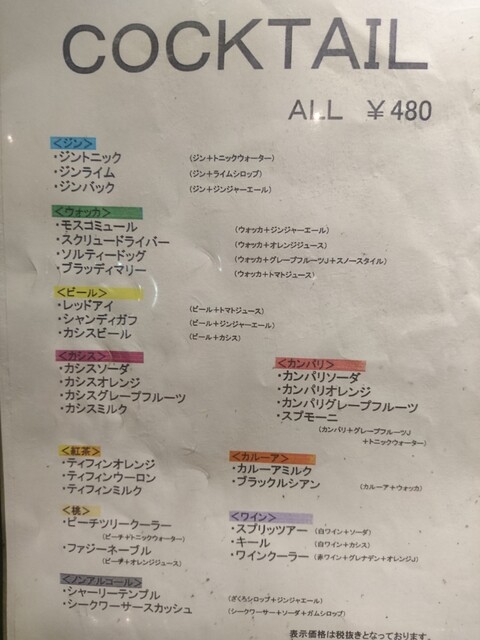 COCKTAIL
ALL ￥480
<ジン>
・ジントニック (ジン+トニックウォーター)
・ジンライム (ジン+ライムシロップ)
・ジンバック (ジン+ジンジャーエール)
<ウォッカ>
・モスコミュール (ウォッカ+ジンジャーエール)
・スクリュードライバー (ウォッカ+オレンジジュース)
・ソルティードッグ (ウォッカ+グレープフルーツJ+スノースタイル)
・ブラッディマリー (ウォッカ+トマトジュース)
<ビール>
・レッドアイ (ビール+トマトジュース)
・シャンディガフ (ビール+ジンジャーエール)
・カシスビール (ビール+カシス)
<カシス>
・カシスソーダ
・カシスオレンジ
・カシスグレープフルーツ
・カシスミルク
<カンパリ>
・カンパリソーダ
・カンパリオレンジ
・カンパリグレープフルーツ
・スプモーニ
(カンパリ+グレープフルーツJ
+トニックウォーター)
<紅茶>
・ティフィンオレンジ
・ティフィンウーロン
・ティフィンミルク
<カルーア>
・カルーアミルク
・ブラックルシアン (カルーア+ウォッカ)
<桃>
・ピーチツリークーラー
(ピーチ+トニックウォーター)
・ファジーネーブル
(ピーチ+オレンジジュース)
<ワイン>
・スプリッツアー (白ワイン+ソーダ)
・キール (白ワイン+カシス)
・ワインクーラー (赤ワイン+グレナデン+オレンジJ)
<ノンアルコール>
・シャーリーテンプル (ざくろシロップ+ジンジャエール)
・シークワーサースカッシュ (シークワーサー+ソーダ+ガムシロップ)
表示価格は税抜きとなっております。